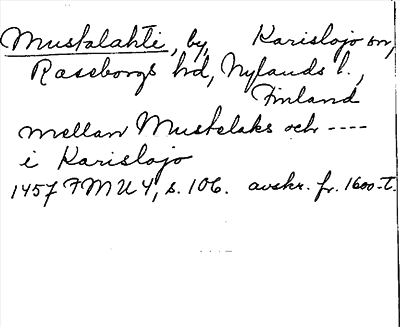 Mustalahti, by, Karislojo sn,
Raseborgs hd, Nylands l.,
Finland
mellan Mustelaks och ----
i Karislojo
1457 FMU 4, s. 106. avskr. fr. 1600-t.